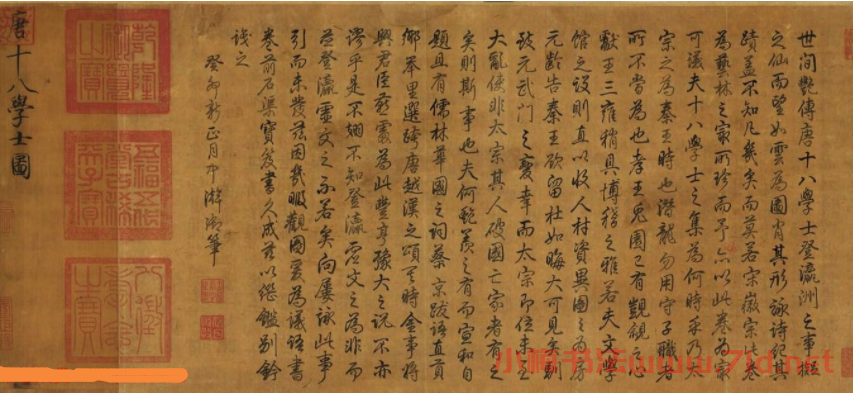 世間艷傳唐十八學士登瀛洲之事擬
之仙而望如雲為圖肖其形詠詩紀其
蹟蓋不知凡幾矣而莫若宋徽宗法卷
為藝林之所珍而予亦以此卷為
可議夫十八學士之集為何時乎乃太
宗之為秦王時也潛龍勿用守子職者
所不當為也孝王兔園已有覬覦之心
獻王三雍稍具博稽之雅若夫文學
館之設則直以收人材資異圖之為房
元齡告秦王欲留杜如晦大可見矣馴
致元武門之變幸而太宗即位未至
大亂使非太宗其人破國亡家者有之
矣則斯事也夫何艷羨之有而宣和自
題且有儒林華國之詞蔡京跋語直貢
鄉舉里選跨唐越漢之頌其時金事將
興君臣為此豐亨豫大之說不亦
謬乎是不知登瀛虛文之為非而
益登瀛虛文之不若矣向屢詠此事
引而未發茲因幾暇觀圖爰為議語書
卷前石渠寶笈書久成茲以繼鑑別鈐
識之
癸卯新正月中澣御筆
乾隆御覽之寶
五福五代堂古稀天子寶
八徵耄念之寶
唐十八學士圖
小楷书法www.7ld.net